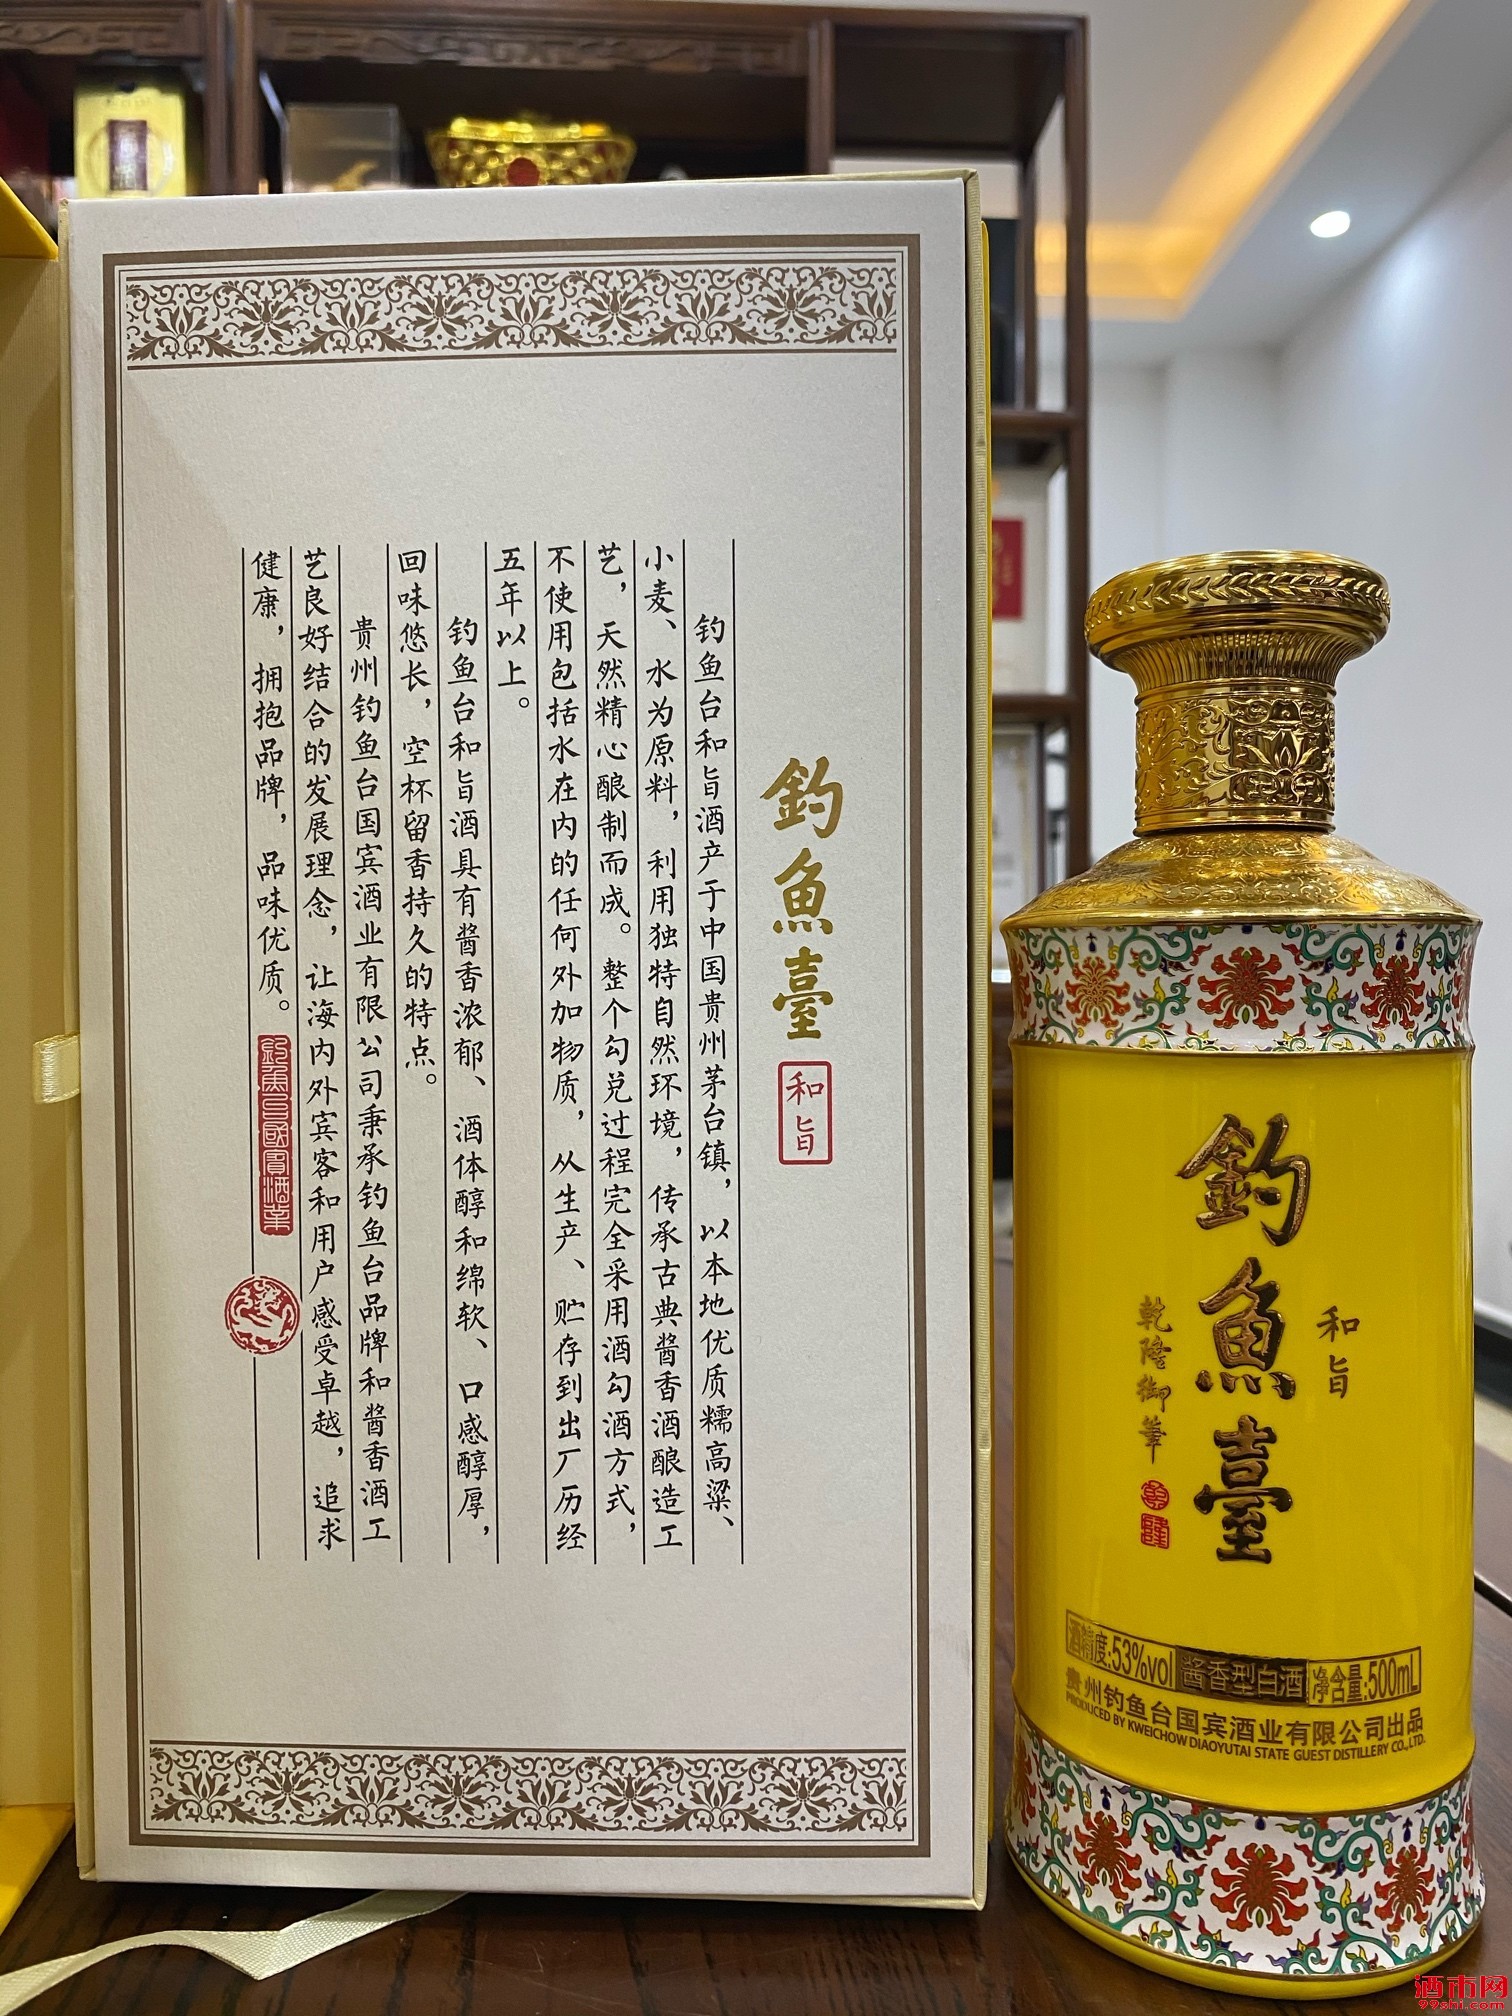 釣魚臺
和旨
钓鱼台和旨酒产于中国贵州茅台镇，以本地优质糯高粱、
小麦、水为原料，利用独特自然环境，传承古典酱香酒酿造工
艺，天然精心酿制而成。整个勾兑过程完全采用酒勾酒方式，
不使用包括水在内的任何外加物质，从生产、贮存到出厂历经
五年以上。
钓鱼台和旨酒具有酱香浓郁、酒体醇和绵软、口感醇厚，
回味悠长，空杯留香持久的特点。
贵州钓鱼台国宾酒业有限公司秉承钓鱼台品牌和酱香酒工
艺良好结合的发展理念，让海内外宾客和用户感受卓越，追求
健康，拥抱品牌，品味优质。
釣魚台國賓酒業
和旨
釣魚臺
乾隆御筆
乾隆
酒精度:53%vol 酱香型白酒 净含量:500mL
贵州钓鱼台国宾酒业有限公司出品
PRODUCED BY KWEICHOW DIAOYUTAI STATE GUEST DISTILLERY CO.,LTD.
酒市网
99shi.com